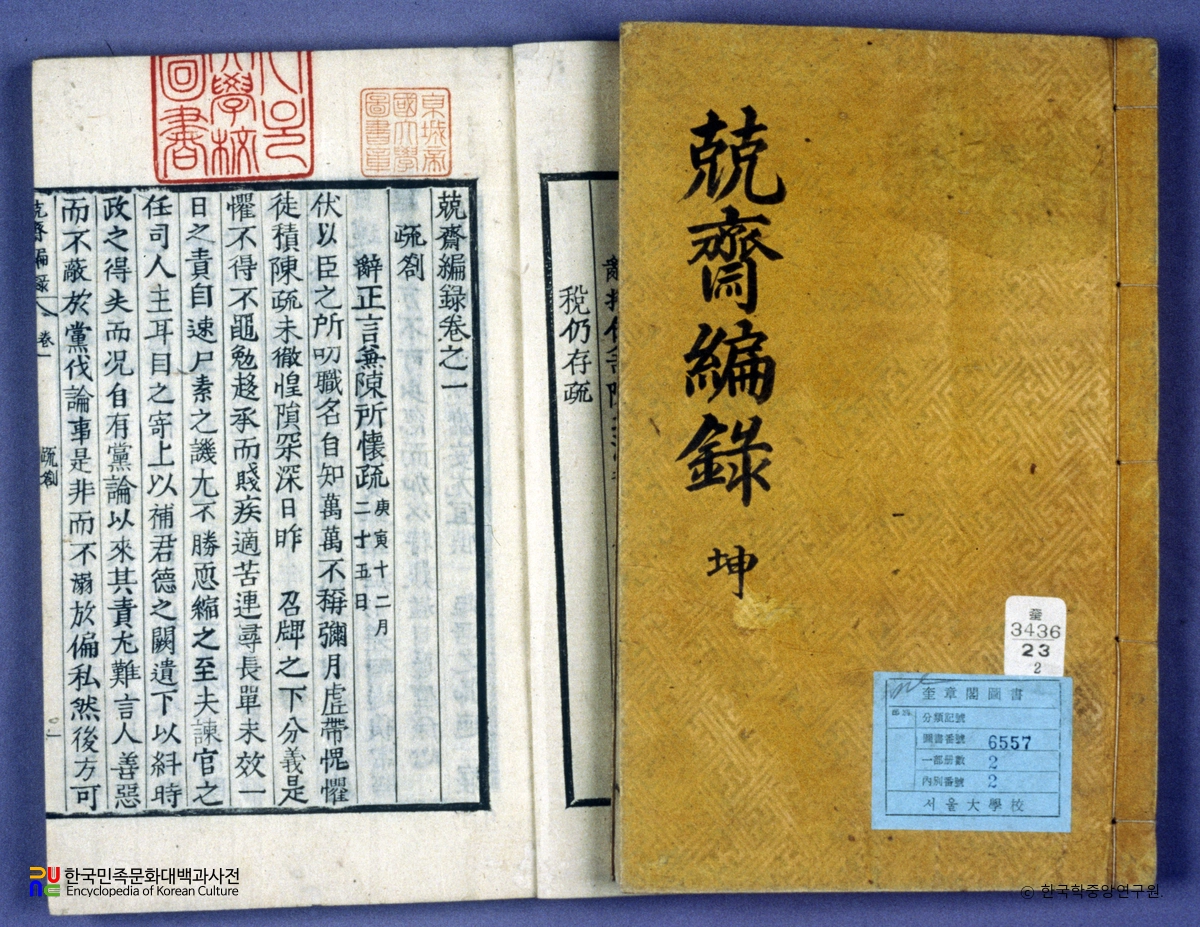 兢齋編錄
坤
奎
3436
23
2
奎章閣圖書
分類記號
圖書番號 6557
一部册數 2
內別番號 2
서울大學校
京城帝
國大學
圖書章
大學校
圖書
兢齋編錄卷之一
疏劄
辭正言兼陳所懷疏 庚寅十二月二十五日
伏以臣之所叨職名自知萬萬不稱彌月虛帶愧懼
徒積陳疏未徹惶隕罙深日昨 召牌之下分義是
懼不得不黽勉趍承而賤疾適苦連尋長單未效一
日之責自速尸素之譏尤不勝恧縮之至夫諫官之
任司人主耳目之寄上以補君德之闕遺下以糾時
政之得失而况自有黨論以來其責尤難言人善惡
而不蔽於黨伐論事是非而不溺於偏私然後方可
兢齋編錄 卷一
疏劄
稅仍存疏
한국민족문화대백과사전
Encyclopedia of Korean Culture
© 한국학중앙연구원